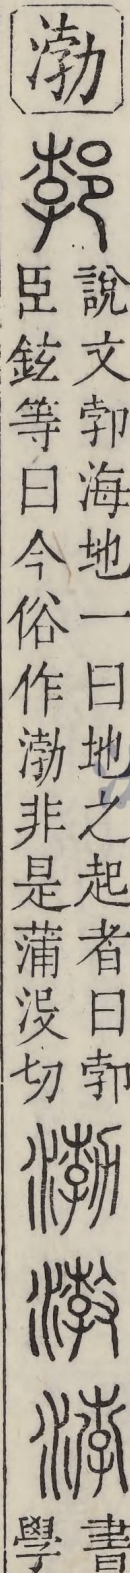 渤
郣
說文郣海地一曰地之起者曰郣
臣鉉等曰今俗作渤非是蒲沒切
書
學